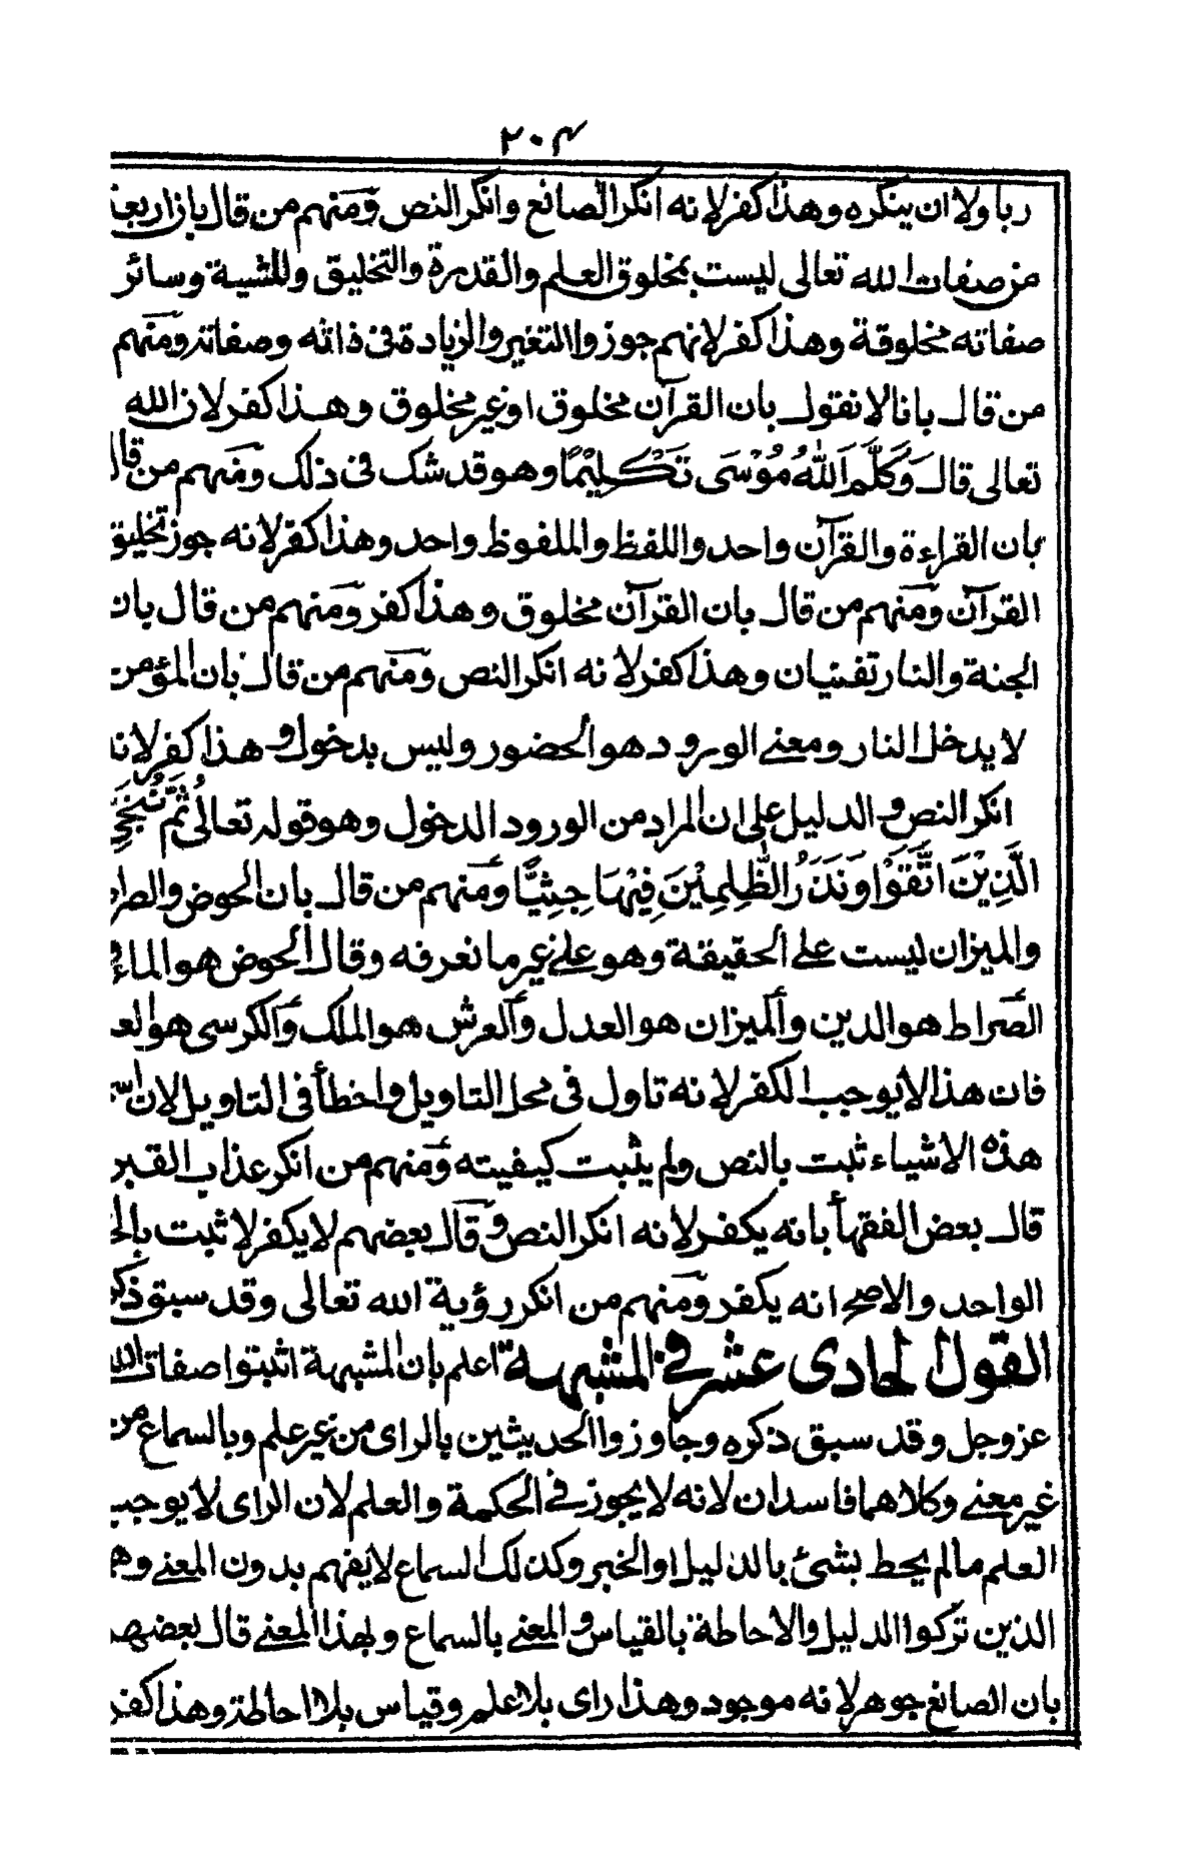 ٢٠٤
ربا ولا ان ينكره وهذا كفر لانه انكر الصانع وانكر النص ومنهم من قال بان اربعة
من صفات الله تعالى ليست بمخلوق العلم والقدرة والتخليق والمشية وسائر
صفاته مخلوقة وهذا كفر لانهم جوزوا التغير والزيادة فى ذاته وصفاته ومنهم
من قال بانا لا نقول بان القرآن مخلوق او غير مخلوق وهذا كفر لان الله
تعالى قال وَكَلَّمَ اللّٰهُ مُوْسَى تَكْلِيْمًا وهو قد شك فى ذلك ومنهم من قال
بان القراءة والقرآن واحد واللفظ والملفوظ واحد وهذا كفر لانه جوز تخليق
القرآن ومنهم من قال بان القرآن مخلوق وهذا كفر ومنهم من قال بان
الجنة والنار تفنيان وهذا كفر لانه انكر النص ومنهم من قال بان المؤمن
لا يدخل النار ومعنى الورود هو الحضور وليس بدخول وهذا كفر لانه
انكر النص والدليل على ان المراد من الورود الدخول وهو قوله تعالى ثُمَّ نُنَجِّى
الَّذِيْنَ اتَّقَوْا وَنَذَرُ الظّٰلِمِيْنَ فِيْهَا جِثِيًّا ومنهم من قال بان الحوض والصراط
والميزان ليست على الحقيقة وهو على غير ما نعرفه وقال الحوض هو الماء و
الصراط هو الدين والميزان هو العدل والعرش هو الملك والكرسى هو العلم
فان هذا لا يوجب الكفر لانه تاول فى محل التاويل واخطأ فى التاويل لان
هذه الاشياء ثبت بالنص ولم يثبت كيفيته ومنهم من انكر عذاب القبر
قال بعض الفقهأ بانه يكفر لانه انكر النص وقال بعضهم لا يكفر لا ثبت بالخبر
الواحد والاصح انه يكفر ومنهم من انكر رؤية الله تعالى وقد سبق ذكره
القول الحادى عشر فى المشبهة اعلم بان المشبهة اثبتوا صفات الله
عز وجل وقد سبق ذكره وجاوزوا الحديثين بالراى من غير علم وبالسماع من
غير معنى وكلاهما فاسدان لانه لا يجوز فى الحكمة والعلم لان الراى لا يوجب
العلم مالم يحط بشئ بالدليل او الخبر وكذلك السماع لا يفهم بدون المعنى وهم
الذين تركوا الدليل والاحاطة بالقياس والمعنى بالسماع وبهذا المعنى قال بعضهم
بان الصانع جوهر لانه موجود وهذا راى بلا علم وقياس بلا احاطة وهذا كفر